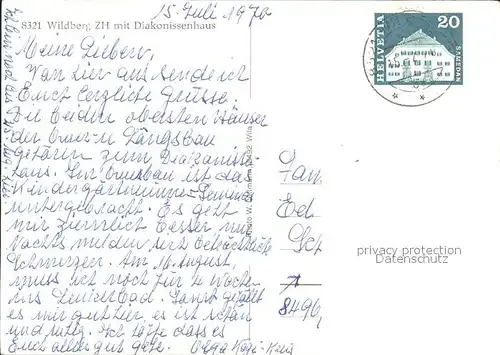 15. Juli 1970
8321 Wildberg ZH mit Diakonissenhaus
Meine Lieben,
Von hier aus sende ich
Euch herzliche Grüsse.
Die beiden obersten Häuser
der Quer- u Längsbau
gehören zum Diakonissen-
haus. Im Querbau ist das
Kindergärtnerinnen-Seminar
untergebracht. Es geht
mir ziemlich besser nur
Nachts melden sich beträchtliche
Schmerzen. Am 16. August,
muss ich noch für 4 Woche
ins Leukerbad. Sonst gefällt
es mir gut hier, es ist schön
und ruhig. Ich hoffe dass es
Euch allen gut geht.
HELVETIA
20
SAMEDAN
Fam
Ed
Sch
8496
privacy protection
Datenschutz